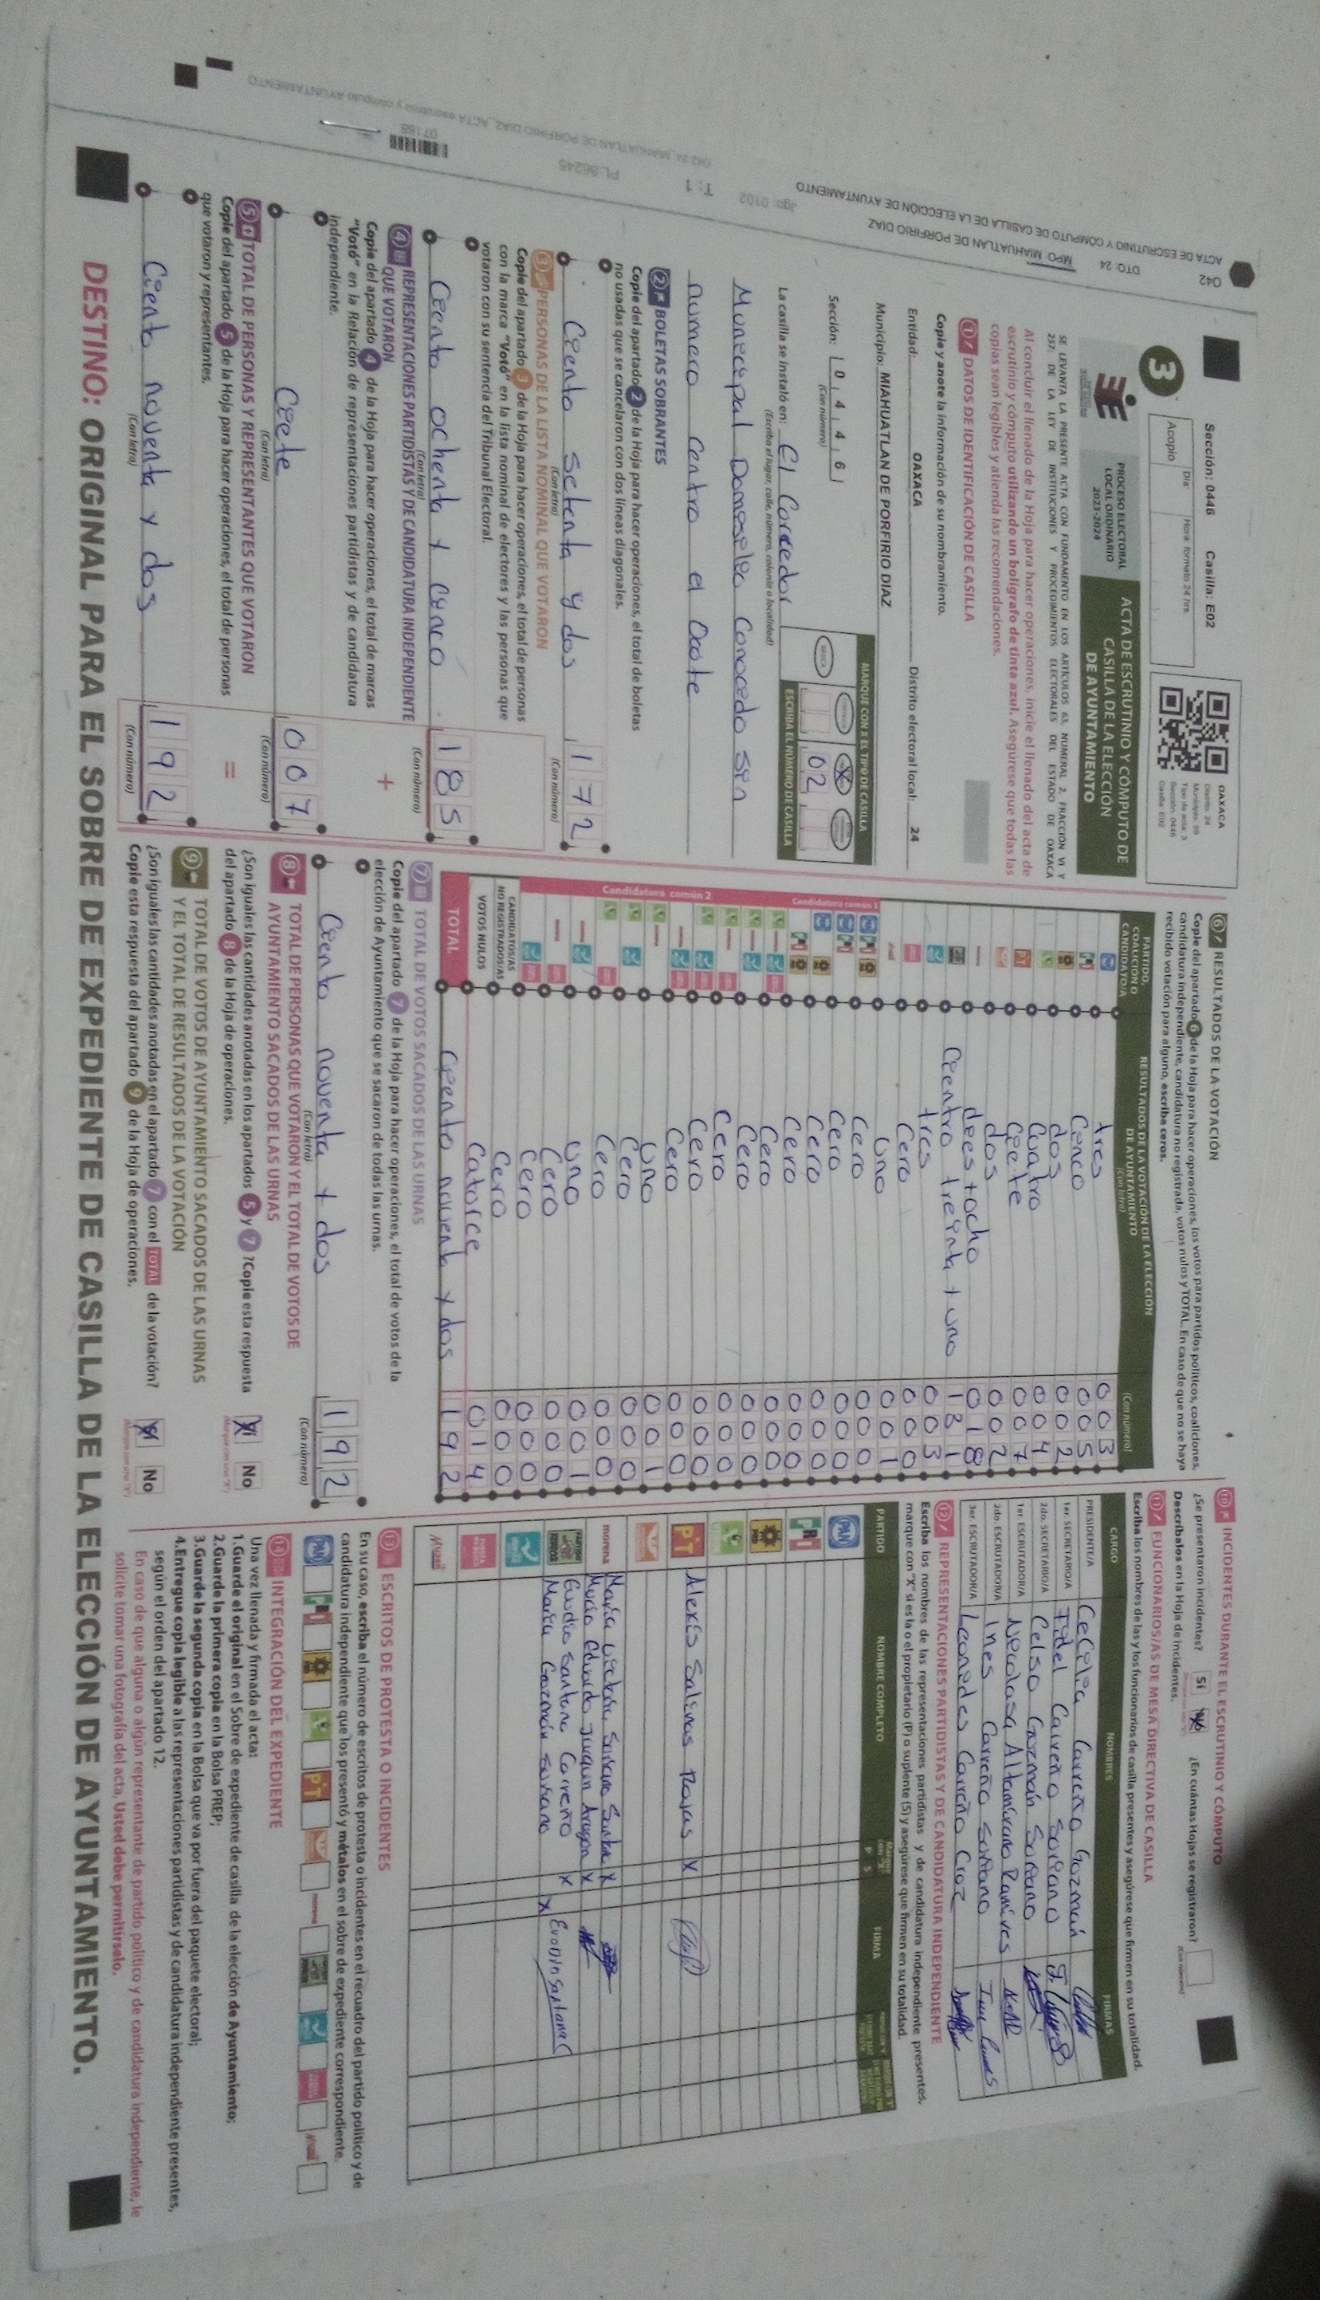 042
DTO: 24 MPO: MIAHUATLAN DE PORFIRIO DIAZ
ACTA DE ESCRUTINIO Y CÓMPUTO DE CASILLA DE LA ELECCIÓN DE AYUNTAMIENTO
T: 1
PL.86245
07188
Sección: 0446 Casilla: E02
3
Acopio
Día
Hora: formato 24 hrs
OAXACA
PROCESO ELECTORAL
LOCAL ORDINARIO
2023-2024
ACTA DE ESCRUTINIO Y CÓMPUTO DE
CASILLA DE LA ELECCIÓN
DE AYUNTAMIENTO
SE LEVANTA LA PRESENTE ACTA CON FUNDAMENTO EN LOS ARTÍCULOS 63, NUMERAL 2, FRACCIÓN VI Y
237; DE LA LEY DE INSTITUCIONES Y PROCEDIMIENTOS ELECTORALES DEL ESTADO DE OAXACA
Al concluir el llenado de la Hoja para hacer operaciones, inicie el llenado del acta de
escrutinio y cómputo utilizando un bolígrafo de tinta azul. Asegúrese que todas las
copias sean legibles y atienda las recomendaciones.
1 DATOS DE IDENTIFICACIÓN DE CASILLA
Copie y anote la información de su nombramiento.
Entidad: OAXACA Distrito electoral local: 24
Municipio: MIAHUATLAN DE PORFIRIO DIAZ
Sección: 0 4 4 6
(Con número)
MARQUE CON X EL TIPO DE CASILLA
02
ESCRIBA EL NÚMERO DE CASILLA
La casilla se instaló en: El Corredor
(Escriba el lugar, calle, número, colonia o localidad)
Municipal Domicilio Conocido sin
numero Centro el Ocote
2 BOLETAS SOBRANTES
Copie del apartado 2 de la Hoja para hacer operaciones, el total de boletas
no usadas que se cancelaron con dos líneas diagonales.
Ciento setenta y dos 172
(Con letra) (Con número)
3 PERSONAS DE LA LISTA NOMINAL QUE VOTARON
Copie del apartado 3 de la Hoja para hacer operaciones, el total de personas
con la marca "Votó" en la lista nominal de electores y las personas que
votaron con su sentencia del Tribunal Electoral.
Ciento ochenta y cinco 185
(Con letra) (Con número)
4 REPRESENTACIONES PARTIDISTAS Y DE CANDIDATURA INDEPENDIENTE
QUE VOTARON
Copie del apartado 4 de la Hoja para hacer operaciones, el total de marcas
"Votó" en la Relación de representaciones partidistas y de candidatura
independiente.
+
Ciete 007
(Con letra) (Con número)
5 TOTAL DE PERSONAS Y REPRESENTANTES QUE VOTARON
Copie del apartado 5 de la Hoja para hacer operaciones, el total de personas
que votaron y representantes.
=
Ciento noventa y dos 192
(Con letra) (Con número)
6 RESULTADOS DE LA VOTACIÓN
Copie del apartado 6 de la Hoja para hacer operaciones, los votos para partidos políticos, coaliciones,
candidatura independiente, candidatura no registrada, votos nulos y TOTAL. En caso de que no se haya
recibido votación para alguno, escriba ceros.
PARTIDO, COALICIÓN O CANDIDATO/A
RESULTADOS DE LA VOTACIÓN DE LA ELECCIÓN
DE AYUNTAMIENTO
(Con letra) (Con número)
tres 003
Cinco 005
dos 002
Cuatro 004
Ciete 007
dos 002
dies + ocho 018
Ciento treinta + uno 131
tres 003
Cero 000
Uno 001
Candidatura común 1
Cero 000
Cero 000
Cero 000
Cero 000
Candidatura común 2
Cero 000
Cero 000
Cero 000
Cero 000
Cero 000
Uno 001
Cero 000
Cero 000
Uno 001
Cero 000
Cero 000
CANDIDATOS/AS NO REGISTRADOS/AS Cero 000
VOTOS NULOS Catorce 014
TOTAL Ciento noventa y dos 192
7 TOTAL DE VOTOS SACADOS DE LAS URNAS
Copie del apartado 7 de la Hoja para hacer operaciones, el total de votos de la
elección de Ayuntamiento que se sacaron de todas las urnas.
Ciento noventa + dos 192
(Con letra) (Con número)
8 TOTAL DE PERSONAS QUE VOTARON Y EL TOTAL DE VOTOS DE
AYUNTAMIENTO SACADOS DE LAS URNAS
¿Son iguales las cantidades anotadas en los apartados 5 y 7 ? Copie esta respuesta
del apartado 8 de la Hoja de operaciones.
No
9 TOTAL DE VOTOS DE AYUNTAMIENTO SACADOS DE LAS URNAS
Y EL TOTAL DE RESULTADOS DE LA VOTACIÓN
¿Son iguales las cantidades anotadas en el apartado 7 con el TOTAL de la votación?
Copie esta respuesta del apartado 9 de la Hoja de operaciones.
No
10 INCIDENTES DURANTE EL ESCRUTINIO Y CÓMPUTO
¿Se presentaron incidentes? Sí ¿En cuántas Hojas se registraron?
Descríbalos en la Hoja de incidentes.
11 FUNCIONARIOS/AS DE MESA DIRECTIVA DE CASILLA
Escriba los nombres de las y los funcionarios de casilla presentes y asegúrese que firmen en su totalidad.
CARGO NOMBRES FIRMAS
PRESIDENTE/A Cecilia Carreño Guzmán
1er. SECRETARIO/A Fidel Carreño Soriano
2do. SECRETARIO/A Celso Guzmán Soriano
1er. ESCRUTADOR/A Nicolasa Altamirano Ramires
2do. ESCRUTADOR/A Ines Carreño Soriano
3er. ESCRUTADOR/A Leonides Carreño Cruz
12 REPRESENTACIONES PARTIDISTAS Y DE CANDIDATURA INDEPENDIENTE
Escriba los nombres de las representaciones partidistas y de candidatura independiente presentes,
marque con "X" si es la o el propietario (P) o suplente (S) y asegúrese que firmen en su totalidad.
PARTIDO NOMBRE COMPLETO P S FIRMA
PAN
PRI
PT Alexis Salinas Rojas X
morena
Eudio Santana Carreño X
Maria Guzmán Soriano X
13 ESCRITOS DE PROTESTA O INCIDENTES
En su caso, escriba el número de escritos de protesta o incidentes en el recuadro del partido político y de
candidatura independiente que los presentó y métalos en el sobre de expediente correspondiente.
14 INTEGRACIÓN DEL EXPEDIENTE
Una vez llenada y firmada el acta:
1. Guarde el original en el Sobre de expediente de casilla de la elección de Ayuntamiento;
2. Guarde la primera copia en la Bolsa PREP;
3. Guarde la segunda copia en la Bolsa que va por fuera del paquete electoral;
4. Entregue copia legible a las representaciones partidistas y de candidatura independiente presentes,
según el orden del apartado 12.
En caso de que alguna o algún representante de partido político y de candidatura independiente, le
solicite tomar una fotografía del acta, Usted debe permitírselo.
DESTINO: ORIGINAL PARA EL SOBRE DE EXPEDIENTE DE CASILLA DE LA ELECCIÓN DE AYUNTAMIENTO.